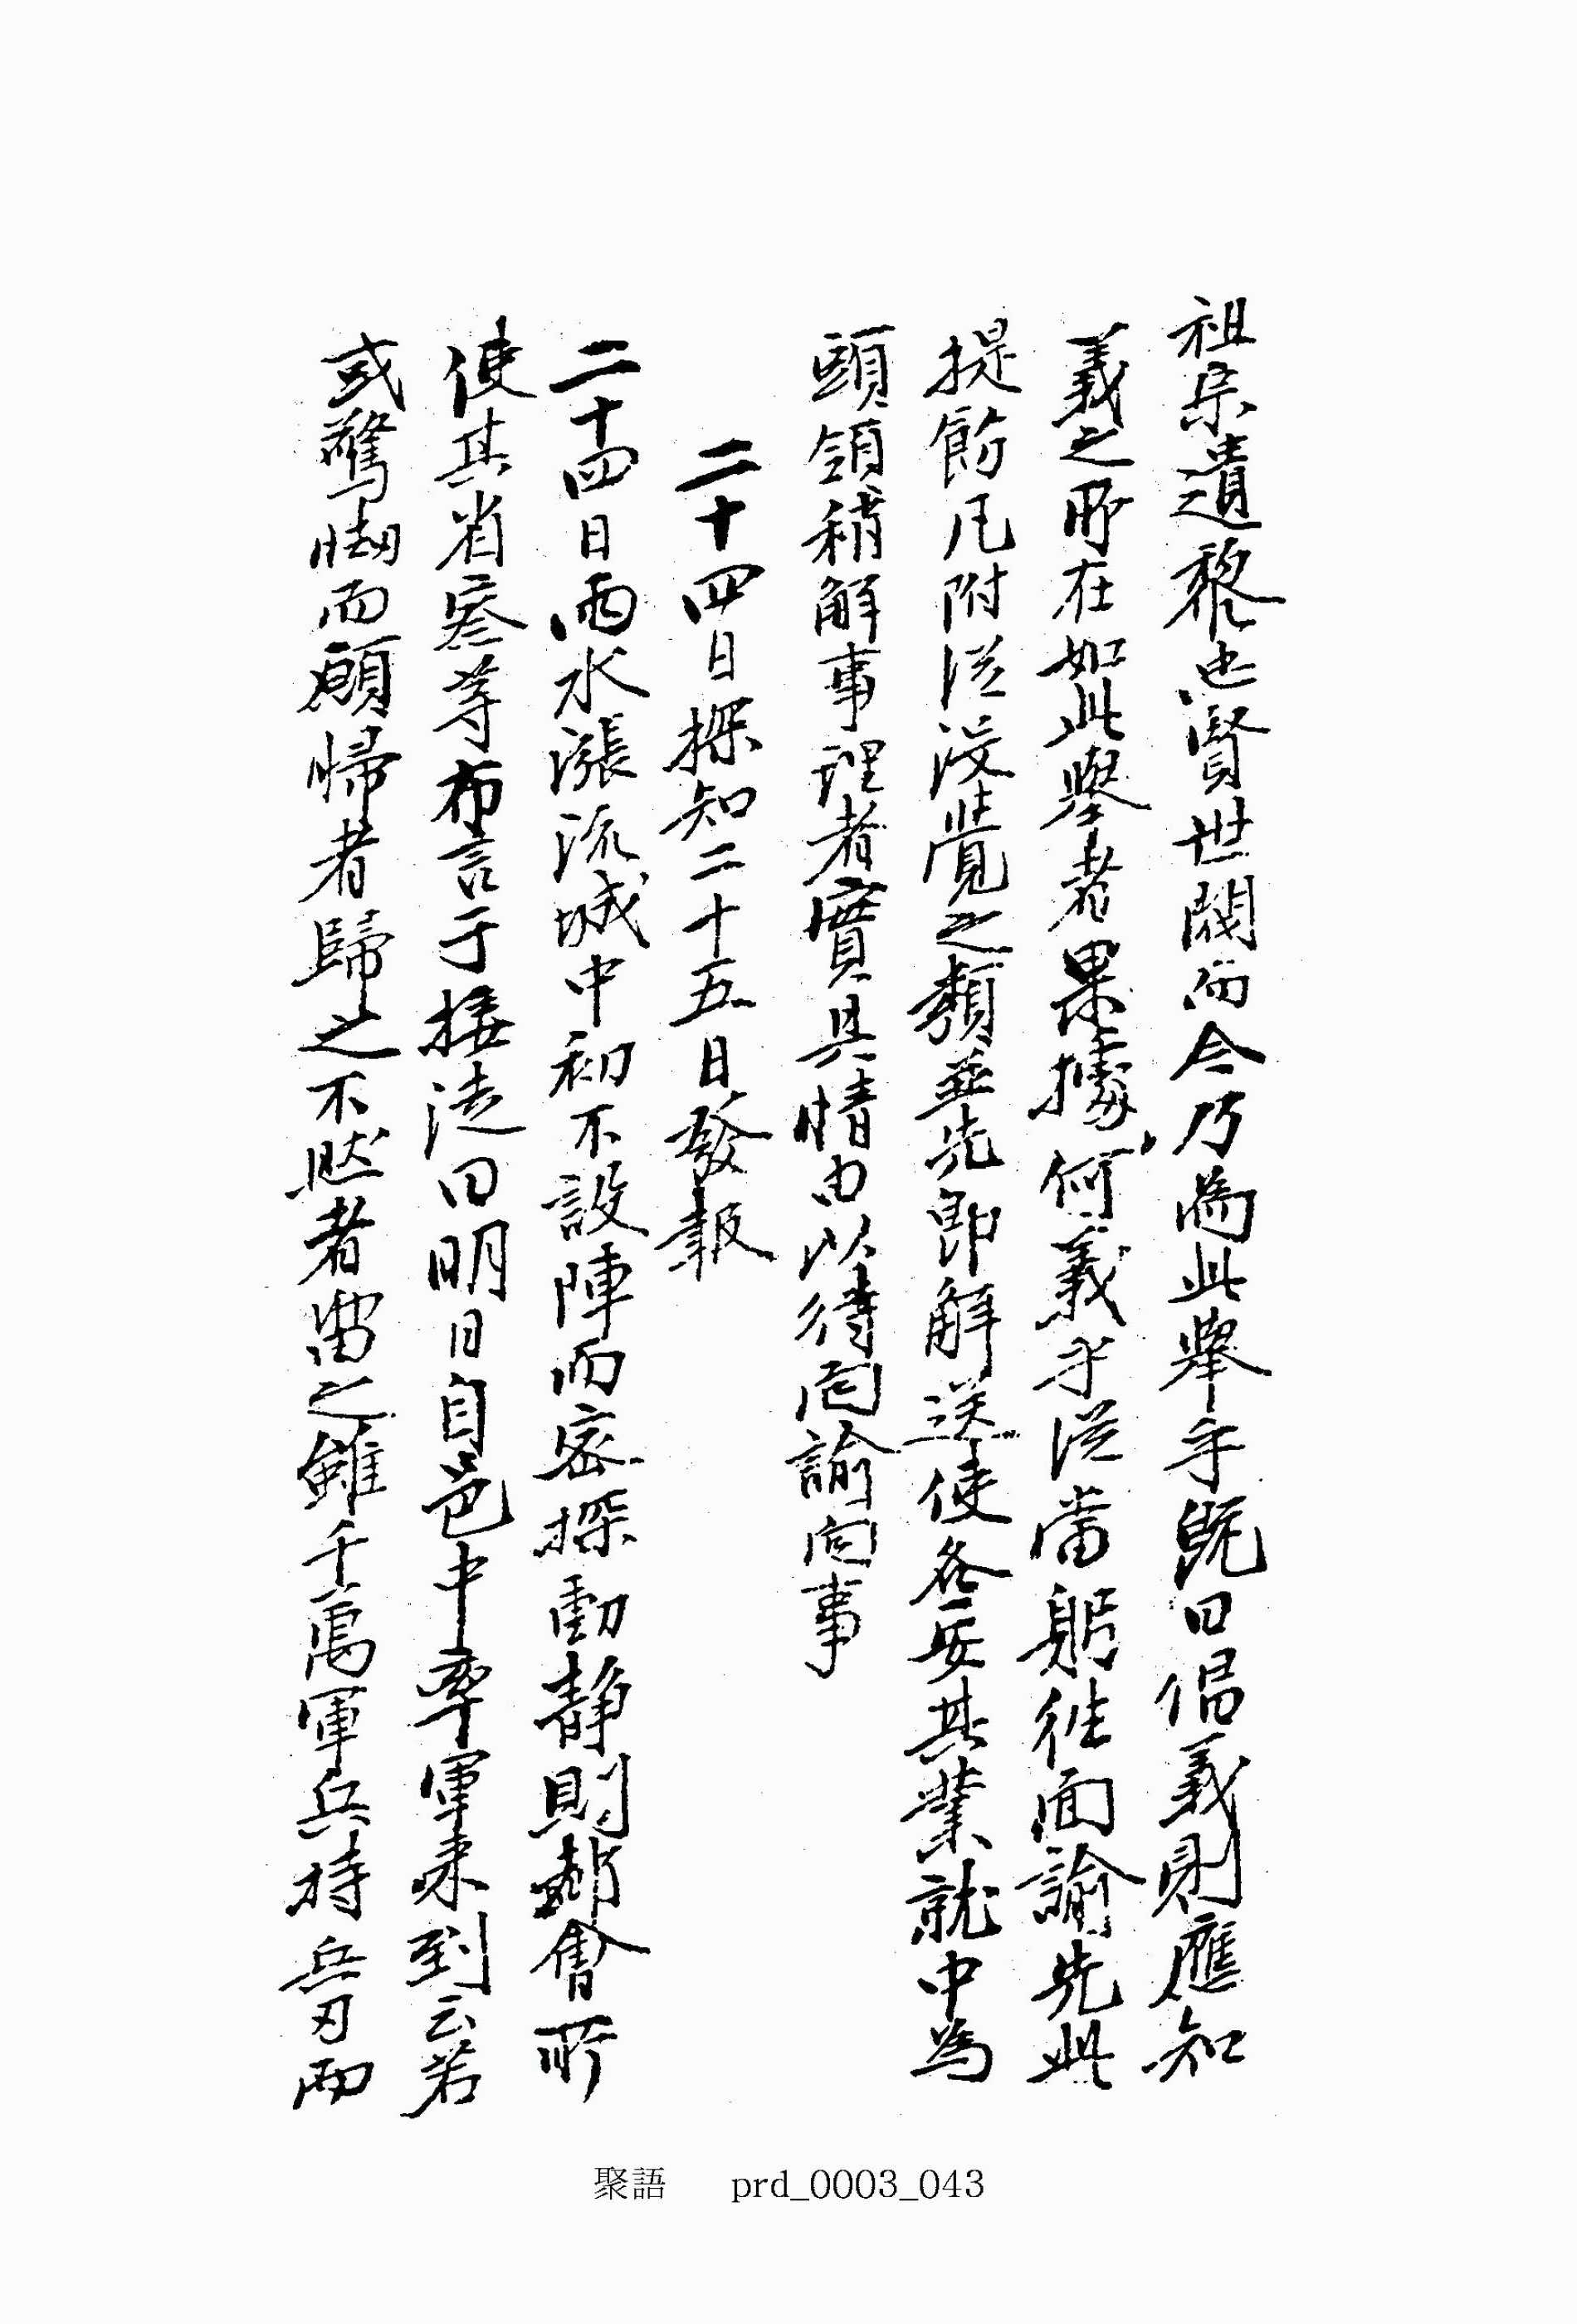 祖宗遺黎忠賢世閥而今乃爲此擧乎旣曰倡義則應知
義之所在如此擧者果據何義乎從當躬徃面諭先此
提飭凡附從沒覺之類並先卽解送使各安其業就中爲
頭領稍解事理者實具情由以待回諭向事
二十四日探知二十五日發報
二十四日雨水漲流城中初不設陣而密探動静則都會所
使其省察等布言于接徒曰明日自邑中率軍来到云若
或驚㥘而願帰者歸之不然者留之雖千萬軍兵持兵刃而